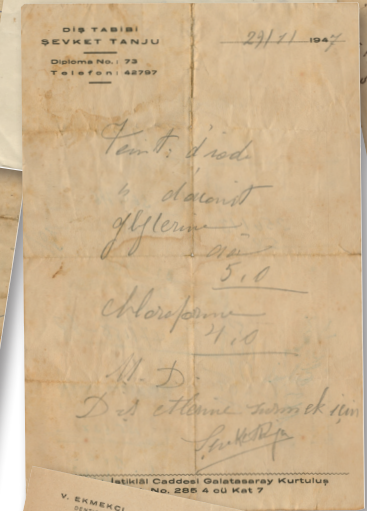 DİŞ TABİBİ
ŞEVKET TANJU
Diploma No.: 73
Telefon: 42797
29/ 1947
Teint: d'iod
" d'aconit
glycerine
aa
5,0
chloroforme
4,0
M. D.
Diş etlerine sürmek için
İstiklâl Caddesi Galatasaray Kurtuluş
No. 285 4 cü Kat 7
V. EKMEKCİ